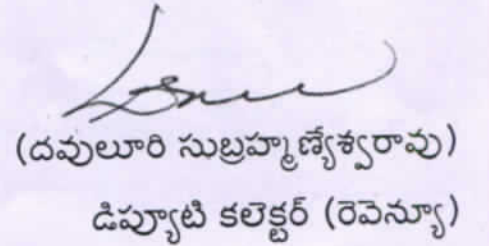 (దవులూరి సుబ్రహ్మణ్యేశ్వరావు)
డిప్యూటి కలెక్టర్ (రెవెన్యూ)